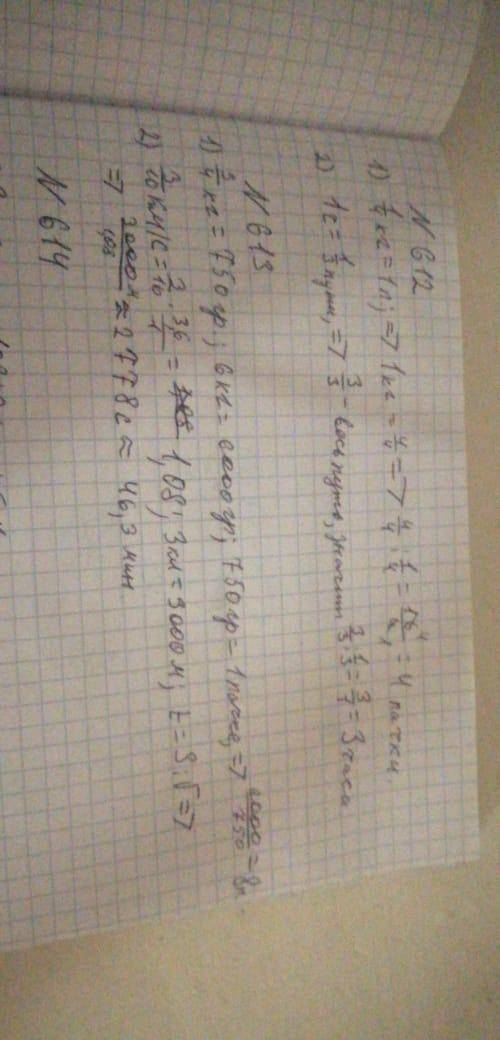 N 612
1) 1/4 кг = 1 п; => 1 кг = 4/4 => 4/4 : 1/4 = 16/4 = 4 пачки.
2) 1 с = 1/3 пути, => 3/3 - весь путь, значит 3/3 : 1/3 = 3/1 = 3 часа
N 613
1) 3/4 кг = 750 гр; 6 кг = 6000 гр; 750 гр = 1 пачке, => 6000/750 = 8 п.
2) 3/10 км/с = 3/10 · 3,6/1 = 1,08; 3 км = 3000 м; t = S : V =>
=> 3000/1,08 ≈ 2778 с ≈ 46,3 мин
N 614